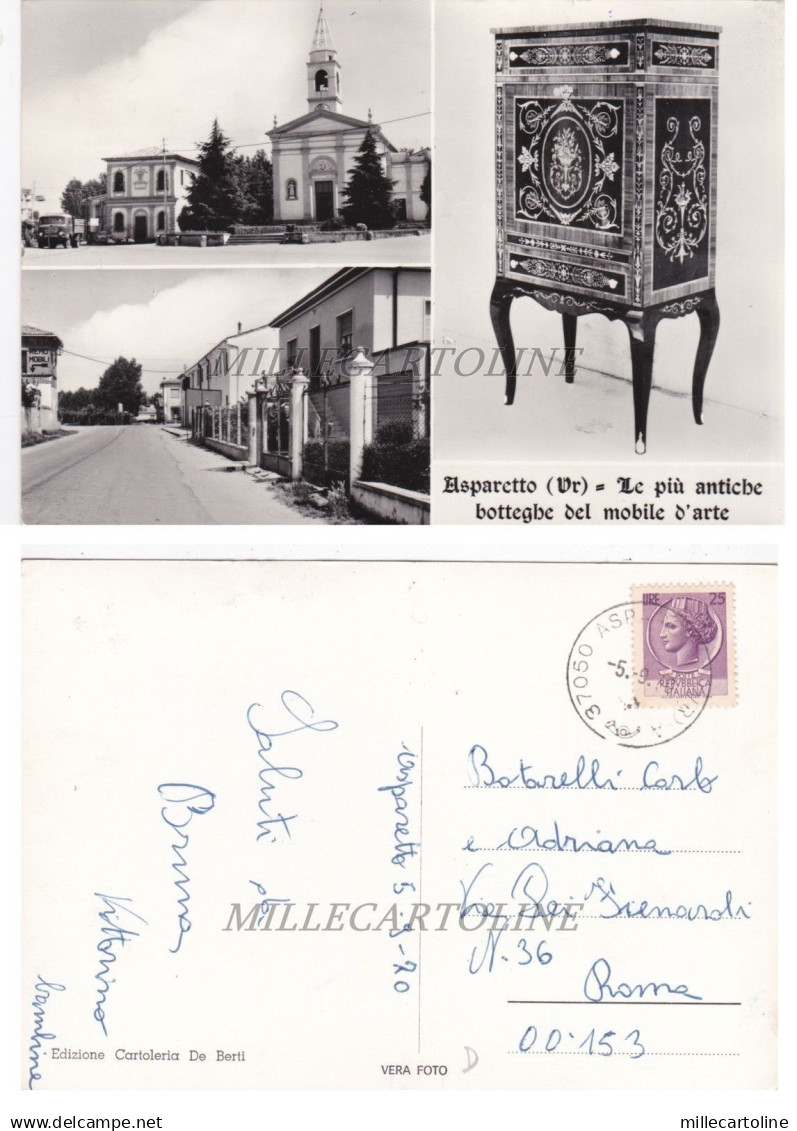 REMO
MOBILI
MILLECARTOLINE
Asparetto (Vr) = Le più antiche
botteghe del mobile d'arte
37050 ASP
-5.-9.
LIRE 25
POSTE
REPVBBLICA
ITALIANA
Saluti da
Bruna
Vittorino
bambine
Asparetto 5-9-70
Botarelli Carlo
e Adriana
Via Dei
N. 36
Roma
00153
MILLECARTOLINE
Edizione Cartoleria De Berti
VERA FOTO
D
delcampe.net
millecartoline